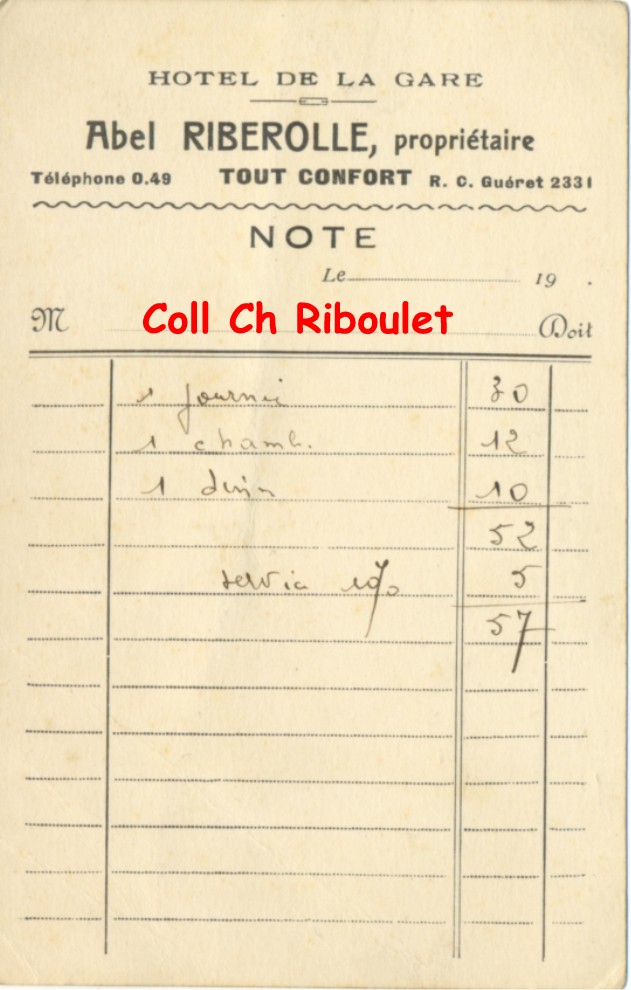 HOTEL DE LA GARE
Abel RIBEROLLE, propriétaire
Téléphone 0.49 TOUT CONFORT R. C. Guéret 2331
NOTE
Le 19 .
M Coll Ch Riboulet Doit
1 journée 30
1 chamb. 12
1 dinin 10
52
service 10% 5
57